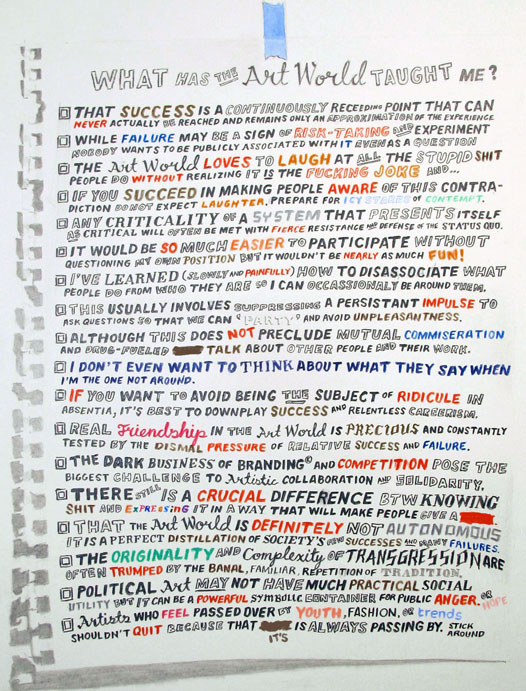 WHAT HAS THE Art World TAUGHT ME?
THAT SUCCESS IS A CONTINUOUSLY RECEEDING POINT THAT CAN
NEVER ACTUALLY BE REACHED AND REMAINS ONLY AN APPROXIMATION OF THE EXPERIENCE
WHILE FAILURE MAY BE A SIGN OF RISK-TAKING AND EXPERIMENT
NOBODY WANTS TO BE PUBLICLY ASSOCIATED WITH IT EVEN AS A QUESTION
THE Art World LOVES TO LAUGH AT ALL THE STUPID SHIT
PEOPLE DO WITHOUT REALIZING IT IS THE FUCKING JOKE AND...
IF YOU SUCCEED IN MAKING PEOPLE AWARE OF THIS CONTRA-
DICTION DO NOT EXPECT LAUGHTER, PREPARE FOR ICY STARES OF CONTEMPT.
ANY CRITICALITY OF A SYSTEM THAT PRESENTS ITSELF
AS CRITICAL WILL OFTEN BE MET WITH FIERCE RESISTANCE AND DEFENSE OF THE STATUS QUO.
IT WOULD BE SO MUCH EASIER TO PARTICIPATE WITHOUT
QUESTIONING MY OWN POSITION BUT IT WOULDN'T BE NEARLY AS MUCH FUN!
I'VE LEARNED (SLOWLY AND PAINFULLY) HOW TO DISASSOCIATE WHAT
PEOPLE DO FROM WHO THEY ARE SO I CAN OCCASSIONALY BE AROUND THEM.
THIS USUALLY INVOLVES SUPPRESSING A PERSISTANT IMPULSE TO
ASK QUESTIONS SO THAT WE CAN 'PARTY' AND AVOID UNPLEASANTNESS.
ALTHOUGH THIS DOES NOT PRECLUDE MUTUAL COMMISERATION
AND DRUG-FUELED TALK ABOUT OTHER PEOPLE AND THEIR WORK.
I DON'T EVEN WANT TO THINK ABOUT WHAT THEY SAY WHEN
I'M THE ONE NOT AROUND.
IF YOU WANT TO AVOID BEING THE SUBJECT OF RIDICULE IN
ABSENTIA, IT'S BEST TO DOWNPLAY SUCCESS AND RELENTLESS CAREERISM.
REAL Friendship IN THE Art World IS PRECIOUS AND CONSTANTLY
TESTED BY THE DISMAL PRESSURE OF RELATIVE SUCCESS AND FAILURE.
THE DARK BUSINESS OF BRANDING© AND COMPETITION POSE THE
BIGGEST CHALLENGE TO Artistic COLLABORATION AND SOLIDARITY.
THERE STILL IS A CRUCIAL DIFFERENCE BTW KNOWING
SHIT AND EXPRESSING IT IN A WAY THAT WILL MAKE PEOPLE GIVE A
THAT THE Art World IS DEFINITELY NOT AUTONOMOUS
IT IS A PERFECT DISTILLATION OF SOCIETY'S FEW SUCCESSES AND MANY FAILURES.
THE ORIGINALITY AND Complexity OF TRANSGRESSION ARE
OFTEN TRUMPED BY THE BANAL, FAMILIAR, REPETITION OF TRADITION.
POLITICAL Art MAY NOT HAVE MUCH PRACTICAL SOCIAL
UTILITY BUT IT CAN BE A POWERFUL SYMBOLIC CONTAINER FOR PUBLIC ANGER. OR HOPE
Artists WHO FEEL PASSED OVER BY YOUTH, FASHION, OR trends
SHOULDN'T QUIT BECAUSE THAT IT'S IS ALWAYS PASSING BY. STICK AROUND